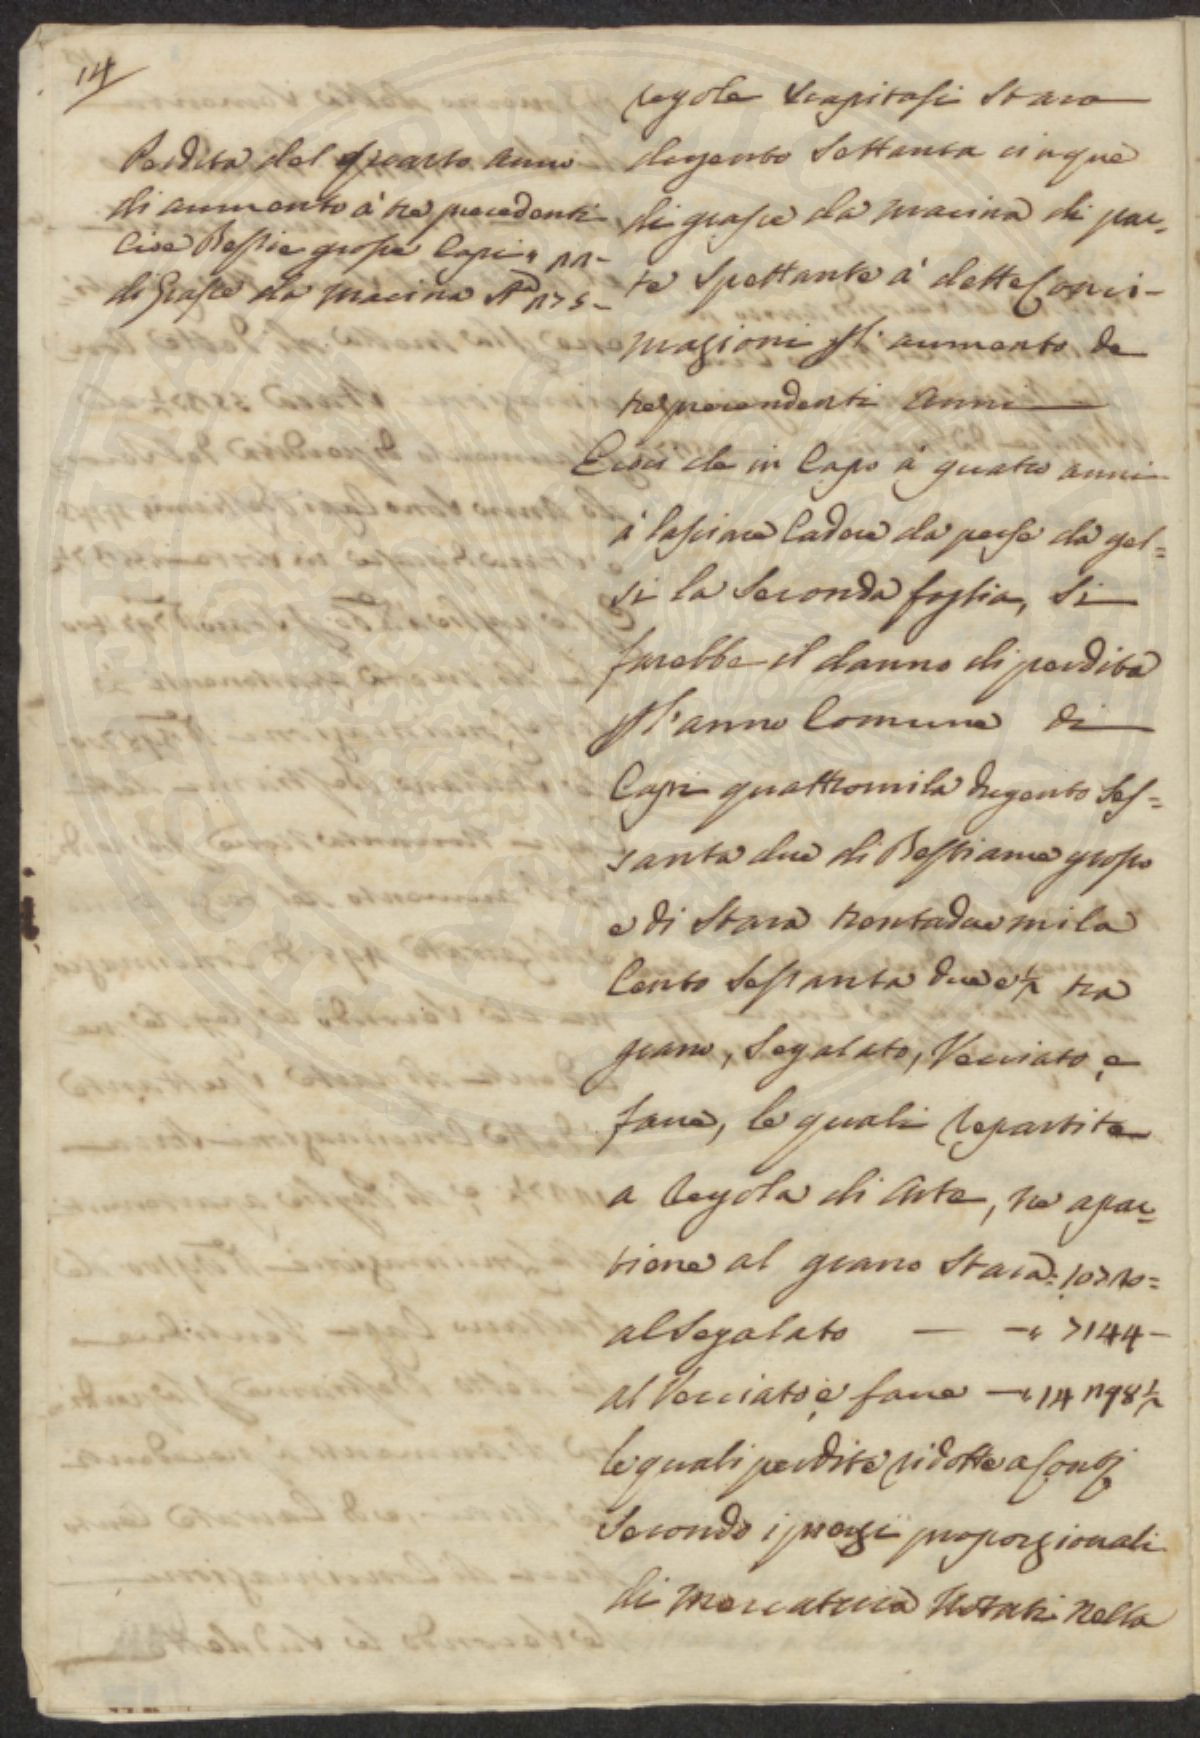 14
Perdita del quarto anno
di aumento à tre precedenti
Cioè Bestie grosse Capi " 22-
di Grasce da macina St.a 275-
regole scapitasi Stara
dugento Settanta cinque
di grasce da macina di par-
te Spettante à dette Conci-
magioni pl' aumento de
tre precendenti anni
Eccoci che in Capo à quatro anni
à lasciare Cadere da perse da gel=
si la Seconda foglia, Si
farebbe il danno di perdita
pl' anno Comune di
Capi quattromila dugento Ses=
santa due di Bestiame grosso
e di Stara trentaduemila
Cento Sessanta due e ½ tra
grano, Segalato, Vecciato, e
fave, le quali repartite
a regola di Arte, ne apar=
tiene al grano Stara: 10720=
al Segalato — —" 7144-
al Vecciato e fave —" 14298½
le quali perdite ridotte a
Secondo i prezzi proporzionali
di mercatura Notati nella